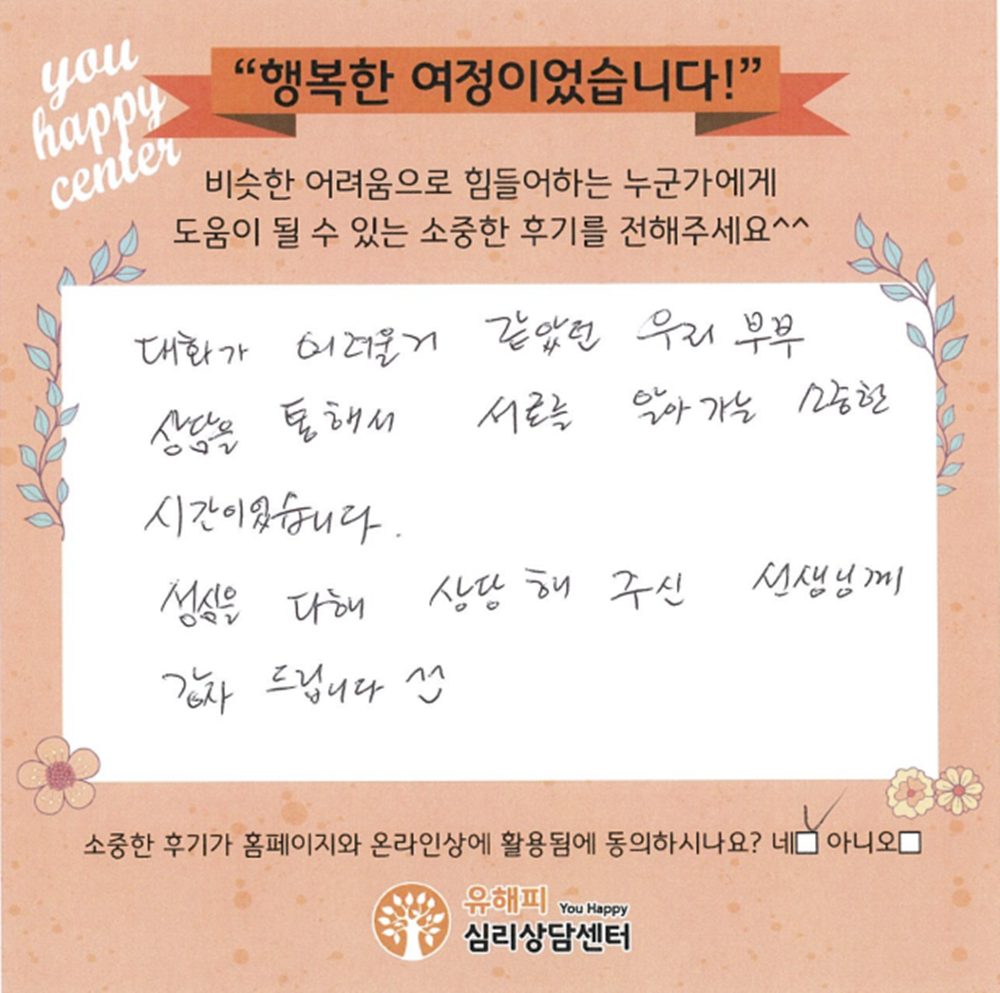 you
happy
center
“행복한 여정이었습니다!”
비슷한 어려움으로 힘들어하는 누군가에게
도움이 될 수 있는 소중한 후기를 전해주세요^^
대화가 어려울거 같았던 우리 부부
상담을 통해서 서로를 알아가는 소중한
시간이었습니다.
성심을 다해 상담해 주신 선생님께
감사 드립니다 ^^
소중한 후기가 홈페이지와 온라인상에 활용됨에 동의하시나요? 네 아니오
유해피 You Happy
심리상담센터